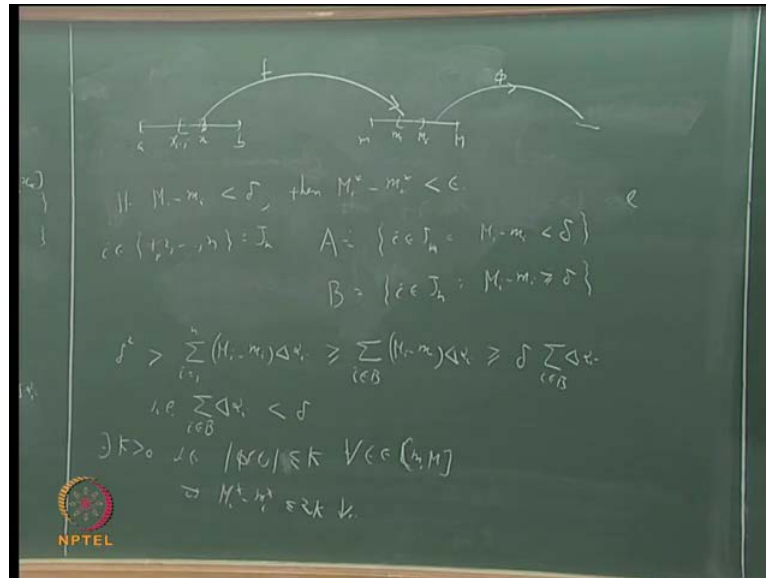 f φ
a x_{i-1} x_i b m m_i M_i M
If M_i - m_i < δ, then M_i^* - m_i^* < ε.
i ∈ {1, 2, ..., n} = J_n A = {i ∈ J_n : M_i - m_i < δ}
B = {i ∈ J_n : M_i - m_i ≥ δ}
δ² > Σ_{i=1}^{n} (M_i - m_i) Δα_i ≥ Σ_{i∈B} (M_i - m_i) Δα_i ≥ δ Σ_{i∈B} Δα_i
i.e. Σ_{i∈B} Δα_i < δ
∃ K > 0 s.t. |φ(t)| ≤ K ∀ t ∈ [m, M]
⇒ M_i^* - m_i^* ≤ 2K ∀ i.
NPTEL